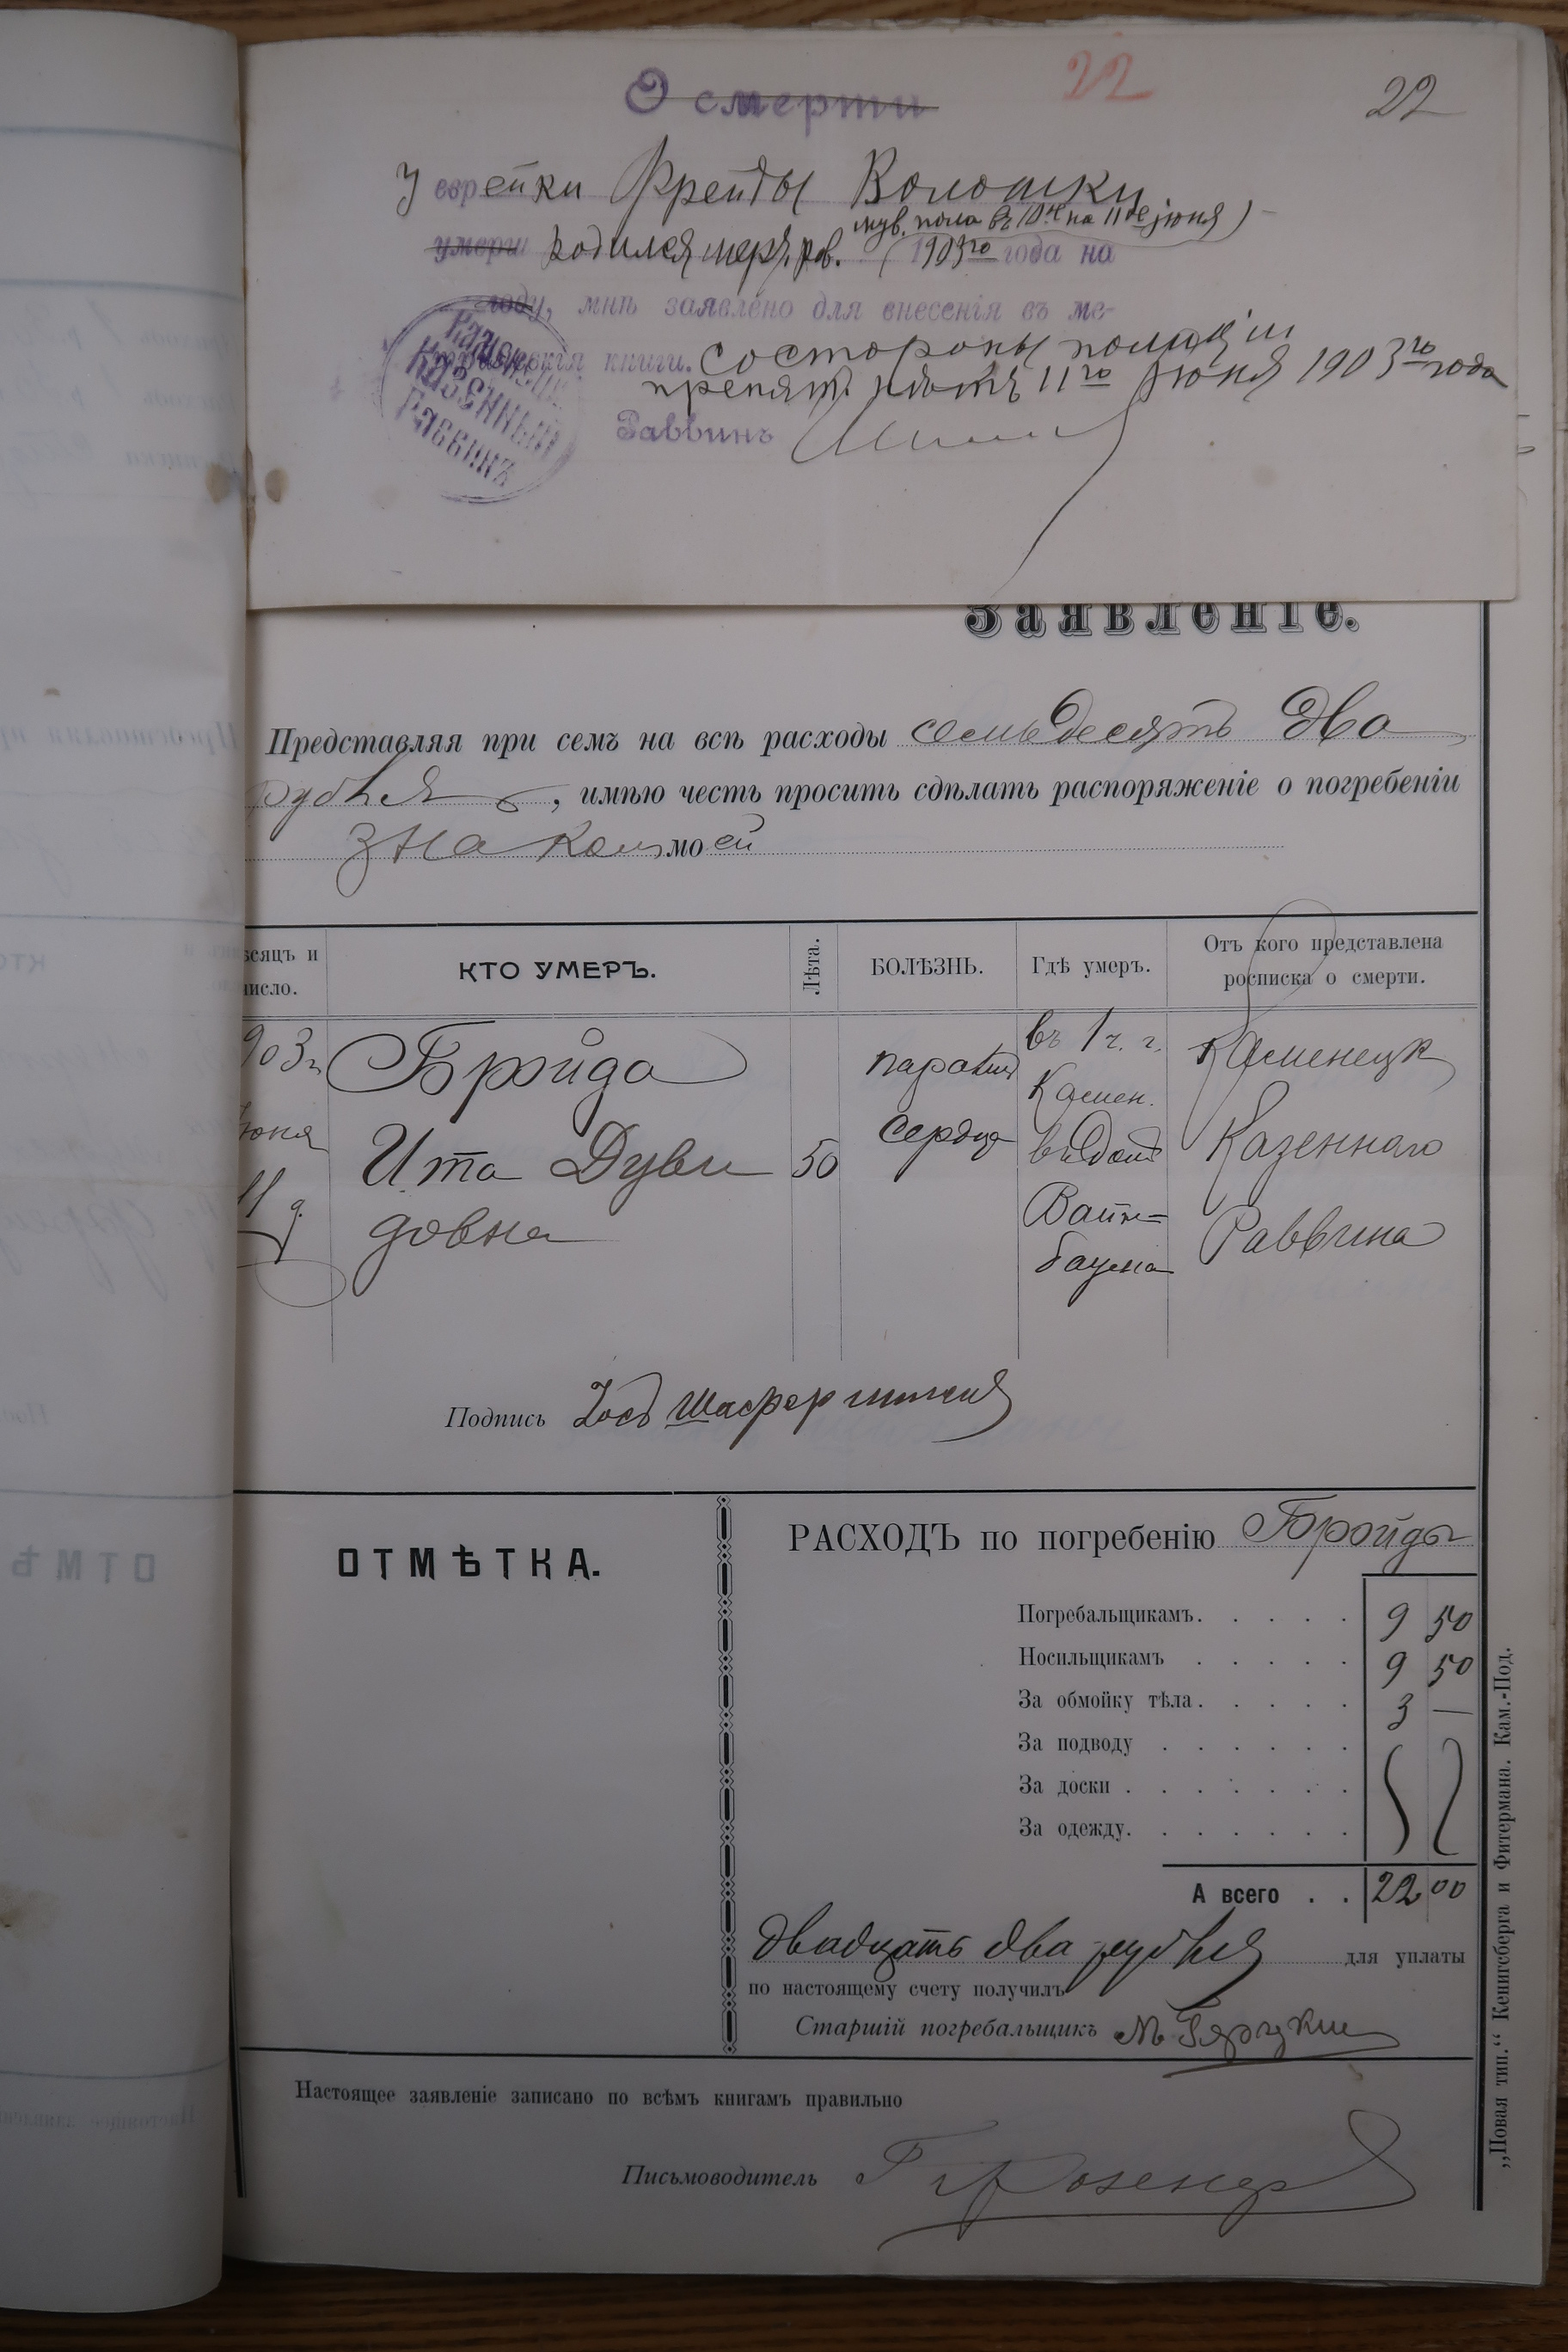 О смерти
22
22
У еврейки Фрейды Волошки
муж. пола въ 10 на 11 ое іюня)
умерш родился мертв. (1903го года на
году, мнѣ заявлено для внесенія въ ме-
книги. Состороны полиціи
препят. нѣтъ 11го Іюня 1903го года
Казенный
Раввинъ
Раввинъ
Заявленіе.
Представляя при семъ на всѣ расходы семьдесятъ два
рубля, имѣю честь просить сдѣлать распоряженіе о погребеніи
знаком моей
ѣсяцъ и число.
КТО УМЕРЪ.
Лѣта.
БОЛѢЗНЬ.
Гдѣ умеръ.
Отъ кого представлена росписка о смерти.
903г
Іюня
11 д.
Бройда
Ита Дуви
довна
50
паралич
сердца
въ 1 ч. г.
Камен.
въ домѣ
Вайн=
баума
Каменецк
Казеннаго
Раввина
Подпись
ОТМѢТКА.
РАСХОДЪ по погребенію Бройды
Погребальщикамъ. 9 50
Носильщикамъ 9 50
За обмойку тѣла. 3 —
За подводу
За доски
За одежду.
А всего 22 00
двадцать два рубля для уплаты
по настоящему счету получилъ
Старшій погребальщикъ
Настоящее заявленіе записано по всѣмъ книгамъ правильно
Письмоводитель
„Новая тип.“ Кенигсберга и Фитермана. Кам.-Под.